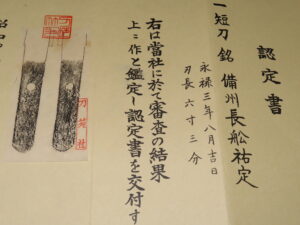 認定書
一 短刀 銘 備州長船祐定
永禄三年八月吉日
刃長六寸三分
右は當社に於て審査の結果
上ニ作と鑑定し認定書を交付す
刀苑社